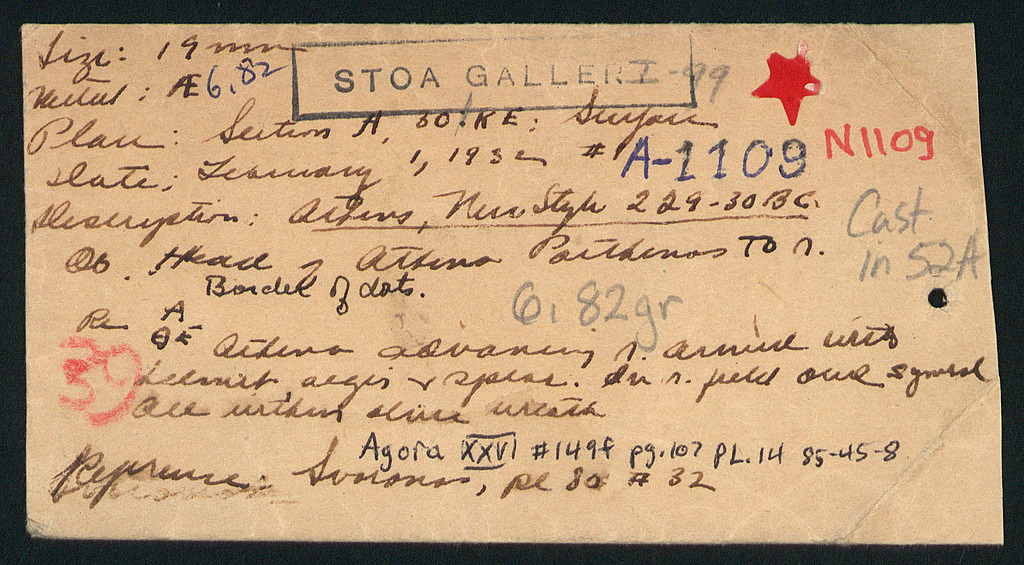 Size: 19 mm
STOA GALLERY
I-99
Metal: Æ 6,82
Place: Section A, 30/KE;
N1109
Date: February 1, 1932 #1
A-1109
Description: Athens, New Style 229-30 BC.
Cast in 52A
Ob. Head of Athena Parthenos to r.
Border of dots.
6,82gr
Re A
ΘΕ Athena advancing r. armed with
helmet, aegis & spear. In r. field owl & symbol
All within olive wreath
Agora XXVI #149f pg.107 PL.14 85-45-8
Reference: Svoronos, pl 80 # 32